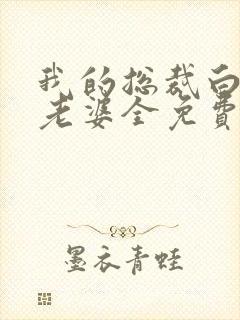 我的总裁白
老婆全免费
墨衣青蛙